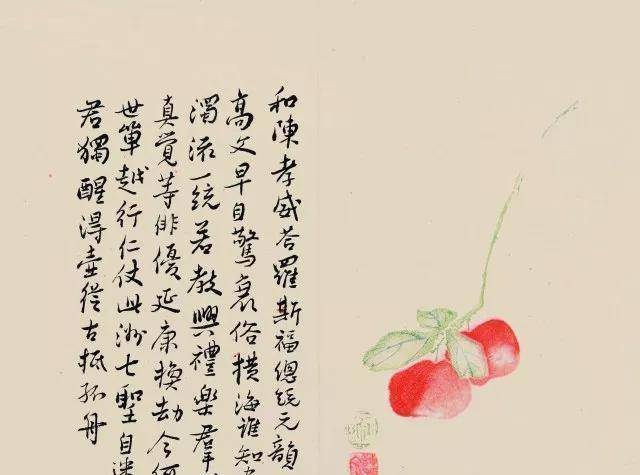 和陳孝威答羅斯福總統元韻
高文早自驚衰俗橫海誰知
濁流一統若教興禮樂羣
真覺等俳優延康換劫今何
世簞越行仁仗此洲七聖自迷
君獨醒得壺從古柢孤舟